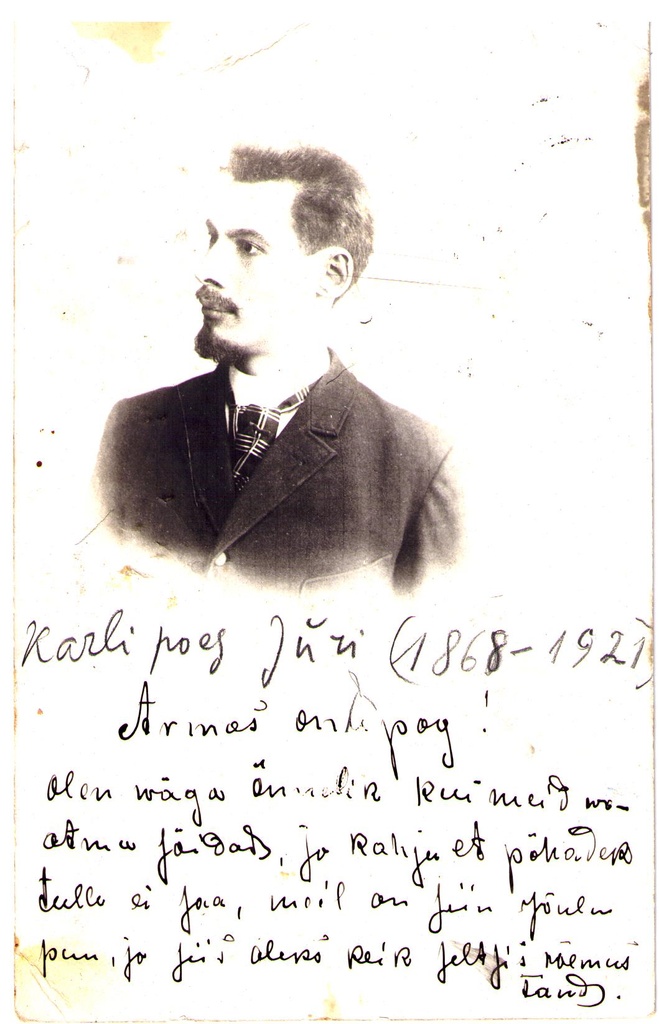 Karli poeg Jüri (1868-1921)
Armas onupoeg!
olen wäga õnnelik kui meid wa-
atma jõidad, ja kahju et pühadeks
tulla ei saa, meil on siin jõulu
puu, ja siis oleks keik seltsis rõemus
tand.